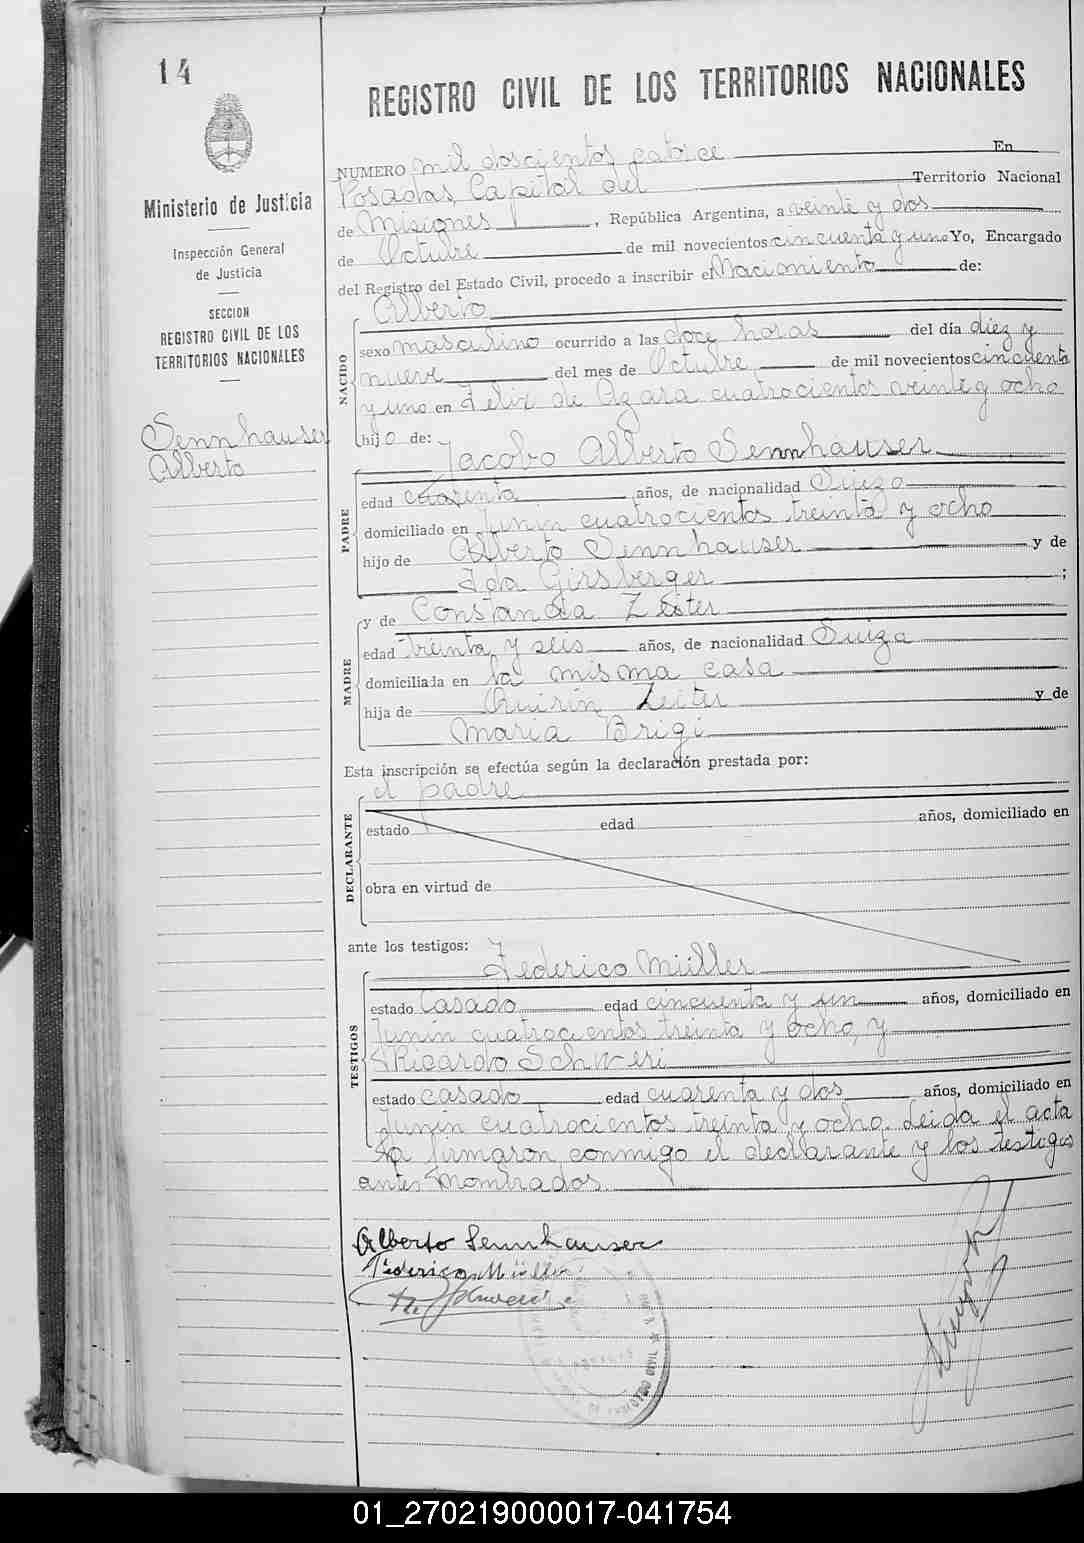 14
Ministerio de Justicia
Inspección General
de Justicia
SECCION
REGISTRO CIVIL DE LOS
TERRITORIOS NACIONALES
Sennhauser
Alberto
REGISTRO CIVIL DE LOS TERRITORIOS NACIONALES
NUMERO mil doscientos catorce En
Posadas Capital del Territorio Nacional
de Misiones, República Argentina, a veinte y dos
de Octubre de mil novecientos cincuenta y uno Yo, Encargado
del Registro del Estado Civil, procedo a inscribir el Nacimiento de:
NACIDO
Alberto
sexo masculino ocurrido a las doce horas del día diez y
nueve del mes de Octubre de mil novecientos cincuenta
y uno en Felix de Azara cuatrocientos veinte y ocho
hijo de:
PADRE
Jacobo Alberto Sennhauser
edad cuarenta años, de nacionalidad Suiza
domiciliado en Junin cuatrocientos treinta y ocho
hijo de Alberto Sennhauser y de
Ida Girsberger ;
MADRE
y de Constancia Zeiter
edad treinta y seis años, de nacionalidad Suiza
domiciliada en la misma casa
hija de Quirin Zeiter y de
Maria Brigi
Esta inscripción se efectúa según la declaración prestada por:
DECLARANTE
el padre
estado edad años, domiciliado en
obra en virtud de
ante los testigos:
TESTIGOS
Federico Müller
estado Casado edad cincuenta y un años, domiciliado en
Junin cuatrocientos treinta y ocho, y
Ricardo Schweri
estado casado edad cuarenta y dos años, domiciliado en
Junin cuatrocientos treinta y ocho. Leida el acta
la firmaron conmigo el declarante y los testigos
antes nombrados
Alberto Sennhauser
Federico Müller
01_270219000017-041754